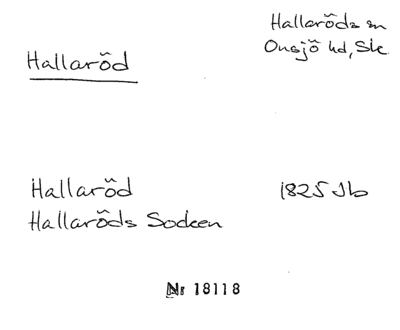 Hallaröd
Hallaröds sn
Onsjö hd, Sk
Hallaröd 1825 Jb
Hallaröds Socken
Nr 18118